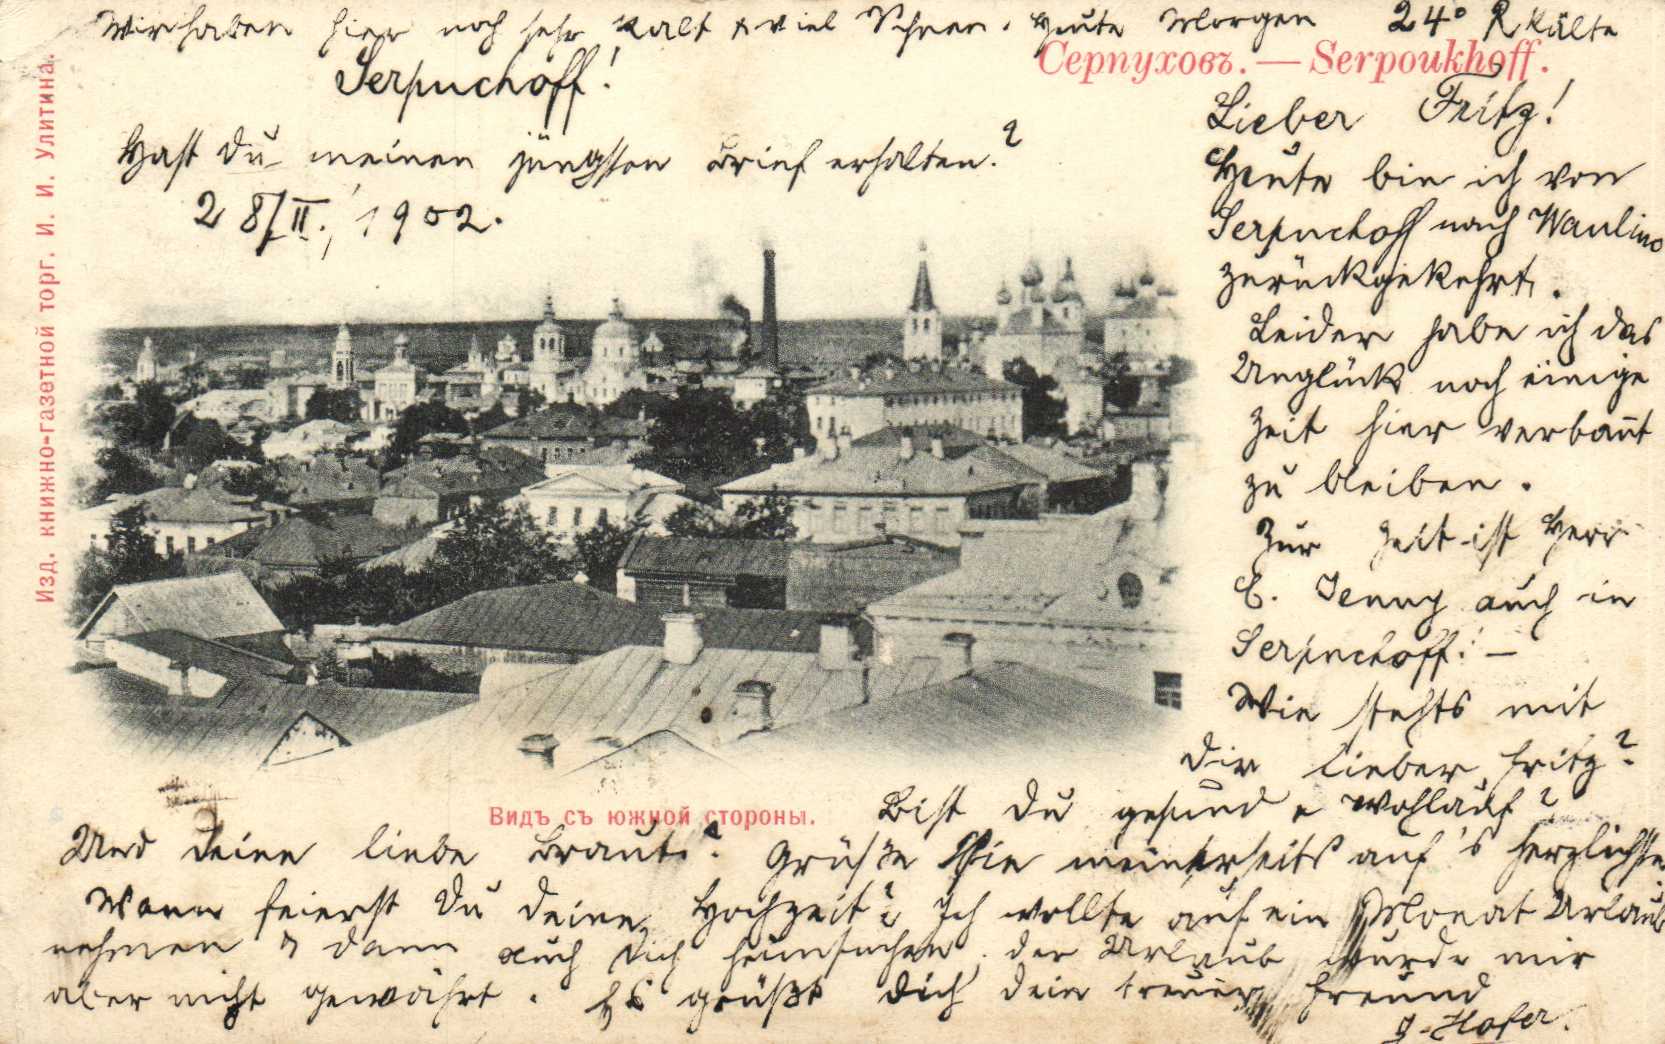 Wir haben hier noch sehr kalt & viel Schnee. Heute Morgen 24° R Kälte
Серпуховъ. — Serpoukhoff.
Serpuchoff!
Hast Du meinen jüngsten Brief erhalten.?
28/II., 1902.
Изд. книжно-газетной торг. И. И. Улитина.
Lieber Fritz!
Heute bin ich von
Serpuchoff nach Waulino
zurückgekehrt.
Leider habe ich das
Unglück noch einige
Zeit hier verbannt
zu bleiben.
Zur Zeit ist Herr
E. Jenny auch in
Serpuchoff. —
Wie stehts mit
Dir lieber Fritz?
Видъ съ южной стороны.
Bist Du gesund & wohlauf?
Und Deine liebe Braut? Grüsse Sie meinerseits auf's herzlichste
Wann feierst Du Deine Hochzeit? Ich wollte auf ein Monat Urlaub
nehmen & dann auch Dich heimsuchen, der Urlaub wurde mir
aber nicht gewährt. Es grüßt Dich Dein treuer Freund
J. Hofer.